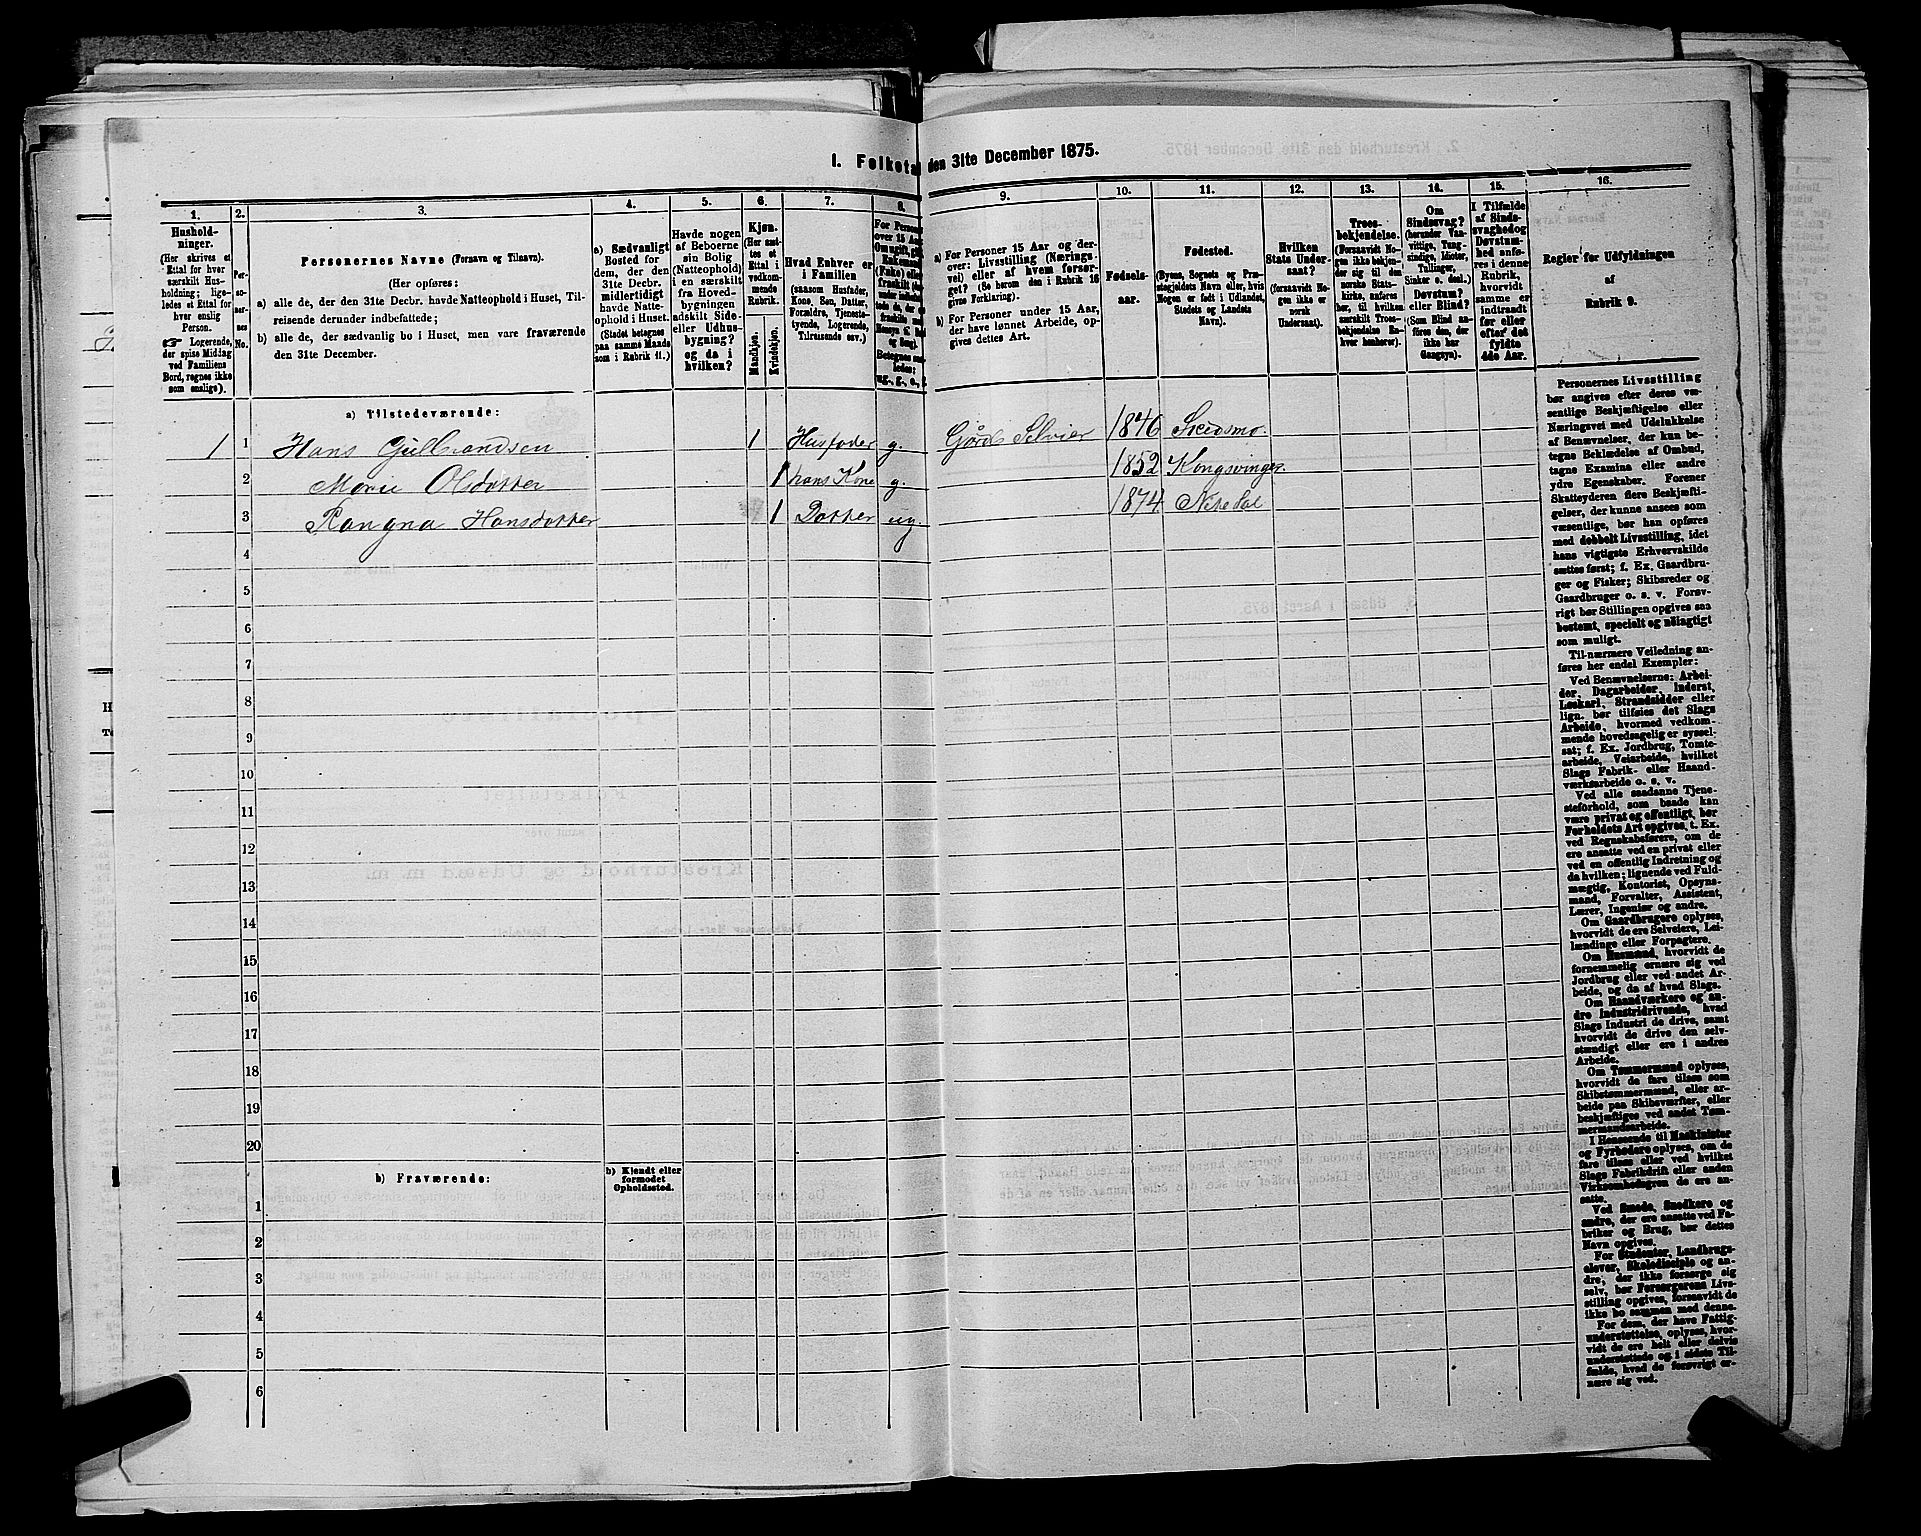 1. Folketæ
den 31te December 1875.
1.
2.
3.
4.
5.
6.
7.
8.
9.
10.
11.
12.
13.
14.
15.
16.
Hushold-
ninger.
(Her skrives et
Ettal for hver
særskilt Hus-
holdning; lige-
ledes et Ettal for
hver enslig
Person.
☞ Logerende,
der spise Middag
ved Familiens
Bord, regnes ikke
som enslige).
Per-
so-
ner-
nes
No.
Personernes Navne (Fornavn og Tilnavn).
(Her opføres:
a) alle de, der den 31te Decbr. havde Natteophold i Huset, Til-
reisende derunder indbefattede;
b) alle de, der sædvanlig bo i Huset, men vare fraværende
den 31te December.
a) Sædvanligt
Bosted for
dem, der den
31te Decbr.
midlertidigt
havde Natte-
ophold i Huset.
(Stedet betegnes
paa samme Maade
som i Rubrik 11.)
Havde nogen
af Beboerne
sin Bolig
(Natteophold)
i en særskilt
fra Hoved-
bygningen
adskilt Side-
eller Udhus-
bygning?
og da i
hvilken?
Kjøn.
(Her sæt-
tes et
Ettal i
vedkom-
mende
Rubrik.
Mandkjøn.
Kvindekjøn.
Hvad Enhver er
i Familien
(saasom Husfader,
Kone, Søn, Datter,
Forældre, Tjeneste-
tyende, Logerende,
Tilreisende osv.)
a) For Personer 15 Aar og der-
over: Livsstilling (Nærings-
vei) eller af hvem forsør-
get? (Se herom den i Rubrik 16
givne Forklaring).
b) For Personer under 15 Aar,
der have lønnet Arbeide, op-
gives dettes Art.
Fødsels-
aar.
Fødested.
(Byens, Sognets og Præ-
stegjeldets Navn eller, hvis
Nogen er født i Udlandet,
Stedets og Landets
Navn).
Hvilken
Stats Under-
saat?
(forsaavidt No-
gen ikke er
norsk
Undersaat).
Troes-
bekjendelse.
(Forsaavidt No-
gen ikke bekjen-
der sig til den
norske Stats-
kirke, anføres
her, til hvilken
særskilt Troes-
bekjendelse En-
hver henhører).
Om
Sindssvag?
(herunder Van-
vittige, Tung-
sindige, Idioter,
Tullinger,
Sinker o. desl.)
Døvstum?
eller Blind?
(Som Blind an-
føres den, der
ikke har
Gangsyn).
I Tilfælde
af Sinds-
svaghed og
Døvstum-
hed anfø-
res i denne
Rubrik,
hvorvidt
samme er
indtraadt
før eller
efter det
fyldte
4de Aar.
Regler for Udfyldningen
af
Rubrik 9.
a) Tilstedeværende:
1 1 Hans Gulbrandsen 1 Husfader g. Gårdb Selvier 1846 Skedsmo.
2 Marie Olsdatter 1 hans Kone g. 1852 Kongsvinger
3 Rangna Hansdatter 1 Datter ug 1874 Nitedal
4
5
6
7
8
9
10
11
12
13
14
15
16
17
18
19
20
b) Fraværende:
b) Kjendt eller
formodet
Opholdssted.
1
2
3
4
5
6
Personernes Livsstilling
bør angives efter deres væ-
sentlige Beskjæftigelse eller
Næringsvei med Udelukkelse
af Benævnelser, der kun be-
tegne Beklædelse af Ombud,
tagne Examina eller andre
ydre Egenskaber. Forener
Skatteyderen flere Beskjæfti-
gelser, der kunne ansees som
væsentlige, bør han opføres
med dobbelt Livsstilling, idet
hans vigtigste Erhvervskilde
sættes først; f. Ex. Gaardbru-
ger og Fisker; Skibsreder og
Gaardbruger o. s. v. Forøv-
rigt bør Stillingen opgives saa
bestemt, specielt og nøiagtigt
som muligt.
Til nærmere Veiledning an-
føres her endel Exempler:
Ved Benævnelserne: Arbei-
der, Dagarbeider, Inderst,
Løskarl, Strandsidder eller
lign. bør tilføies det Slags
Arbeide, hvormed vedkom-
mende hovedsagelig er syssel-
sat; f. Ex. Jordbrug, Tomte-
arbeide, Veiarbeide, hvilket
Slags Fabrik- eller Haand-
værksarbeide o. s. v.
Ved alle saadanne Tjene-
steforhold, som baade kan
være privat og offentligt, bør
Forholdets Art opgives, t. Ex.
ved Regnskabsførere, om de
ere ansatte ved en privat eller
ved en offentlig Indretning og
da hvilken; lignende ved Fuld-
mægtig, Kontorist, Opsyns-
mand, Forvalter, Assistent,
Lærer, Ingeniør og andre.
Om Gaardbrugere oplyses,
hvorvidt de ere Selveiere, Lei-
lændinge eller Forpagtere.
Om Husmænd, hvorvidt de
fornemmelig ernære sig ved
Jordbrug eller ved andet Ar-
beide, og da af hvad Slags.
Om Haandværkere og an-
dre Industridrivende, hvad
Slags Industri de drive, samt
hvorvidt de drive den selv-
stændigt eller ere i andres
Arbeide.
Om Tømmermænd oplyses,
hvorvidt de fare tilsøs som
Skibstømmermænd, eller ar-
beide paa Skibsværfter, eller
beskjæftiges ved andet Tøm-
mermandsarbeide.
I Henseende til Maskinister
og Fyrbødere oplyses, om de
fare tilsøs eller ved hvilket
Slags Fabrikdrift eller anden
Virksomhed de ere an-
satte.
Ved Smede, Snedkere og
andre, der ere ansatte ved Fa-
briker og Brug, bør dettes
Navn opgives.
For Studenter, Landbrugs-
elever, Skoledisciple og an-
dre, der ikke forsørge sig
selv, bør Forsørgerens Livs-
stilling opgives, forsaavidt de
ikke bo sammen med denne.
For dem, der have Fattig-
understøttelse, oplyses, hvor-
vidt de ere helt eller delvis
understøttede og i sidste Til-
fælde, hvad de forøvrigt er-
nære sig ved.